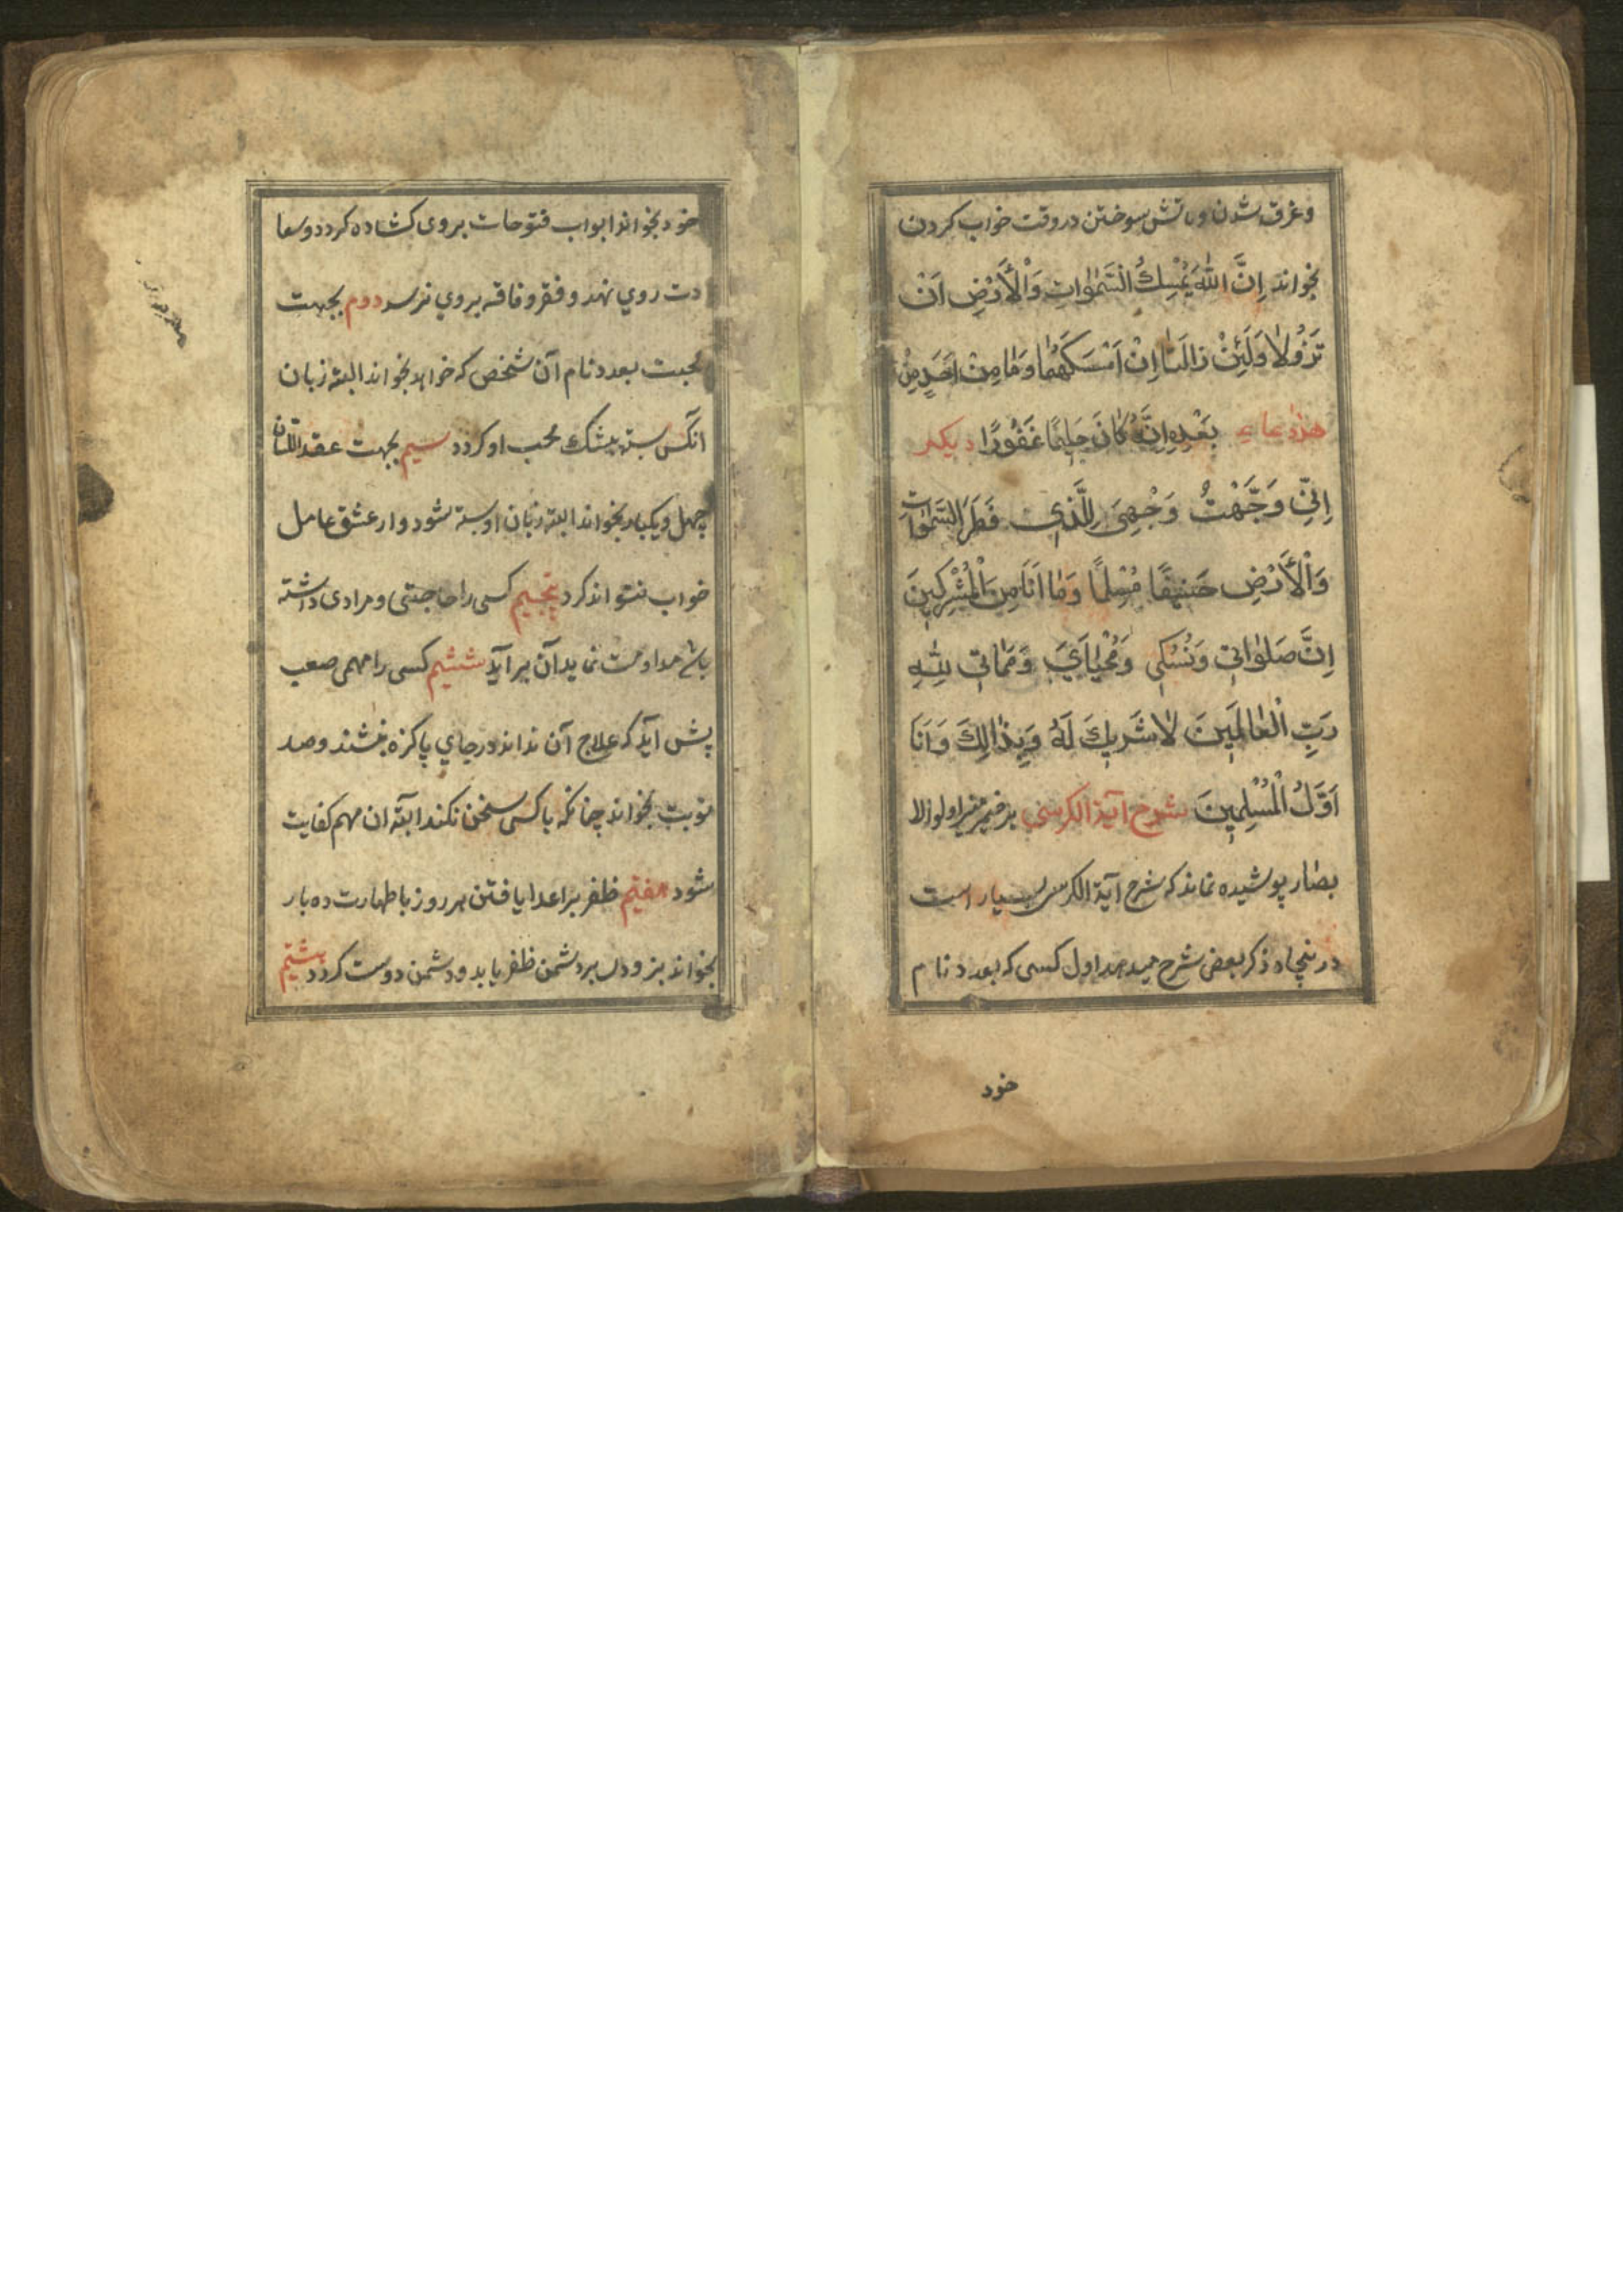 وغرق شدن وباتش سوختن در وقت خواب کردن
بخواند اِنَّ اللّٰهَ یُمْسِكُ السَّمٰوٰاتِ وَالْأَرْضِ اَنْ
تَزُوُلاٰ وَلَئِنْ زٰالَتٰا اِنْ اَمْسَكَهُمٰا وَمٰا مِنْ اَحَدٍ مِنْ
هذا دعاء بَعْدِهِ اِنَّهُ كٰانَ حَلِيمًا غَفُورًا دیکر
اِنّی وَجَّهْتُ وَجْهِیَ لِلَّذی فَطَرَ السَّمٰوٰاتِ
وَالْأَرْضِ حَنیفًا مُسْلِمًا وَمٰا اَنَا مِنَ الْمُشْرِكینَ
اِنَّ صَلوٰاتی وَنُسُکی وَمَحْیٰایَ وَمَمٰاتی لِلّٰهِ
رَبِّ الْعٰالَمینَ لاٰ شَریكَ لَهُ وَبِذٰالِكَ وَاَنَا
اَوَّلُ الْمُسْلِمینَ شرح آیة الکرسی بر ضمیر منیر اولوالا
بصار پوشیده نماند که شرح آیة الکرسی بسیار است
در ینجا ذکر بعض شرح میدهد اول کسی که بعدد نام
خود
خود بخواند ابواب فتوحات بروی کشاده کردد وسعا
دت روی نهد وفقر وفاقه بروی نرسد دوم بجهت
محبت بعدد نام آن شخص که خواهد بخواند البته زبان
انکس بسته بیشك محب او کردد سیم بجهت عقد اللسان
چهل ویکبار بخواند البته زبان او بسته شود واز عشق عامل
خواب نتواند کرد پنجیم کسی را حاجتی ومرادی داشته
باشد مداومت نماید آن برآید ششیم کسی را مهمی صعب
پش آید که علاج آن نداند در جای پاکزه بنشند وصد
نوبت بخواند چنانکه باکسی سخن نکند البته ان مهم کفایت
شود هفتم ظفر بر اعدا یافتن هر روز باطهارت ده بار
بخواند بزودی بر دشمن ظفر یابد ودشمن دوست کردد هشتم